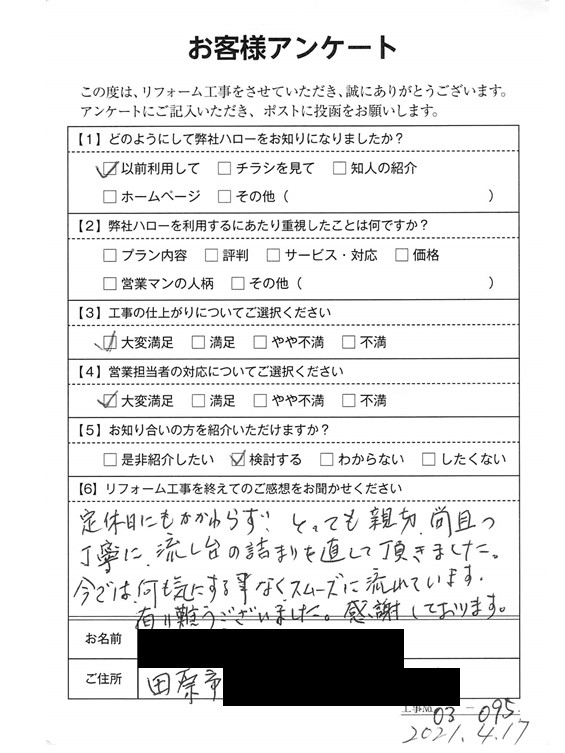 お客様アンケート
この度は、リフォーム工事をさせていただき、誠にありがとうございます。
アンケートにご記入いただき、ポストに投函をお願いします。
【1】どのようにして弊社ハローをお知りになりましたか？
☑以前利用して □チラシを見て □知人の紹介
□ホームページ □その他（ ）
【2】弊社ハローを利用するにあたり重視したことは何ですか？
□プラン内容 □評判 □サービス・対応 □価格
□営業マンの人柄 □その他（ ）
【3】工事の仕上がりについてご選択ください
☑大変満足 □満足 □やや不満 □不満
【4】営業担当者の対応についてご選択ください
☑大変満足 □満足 □やや不満 □不満
【5】お知り合いの方を紹介いただけますか？
□是非紹介したい ☑検討する □わからない □したくない
【6】リフォーム工事を終えてのご感想をお聞かせください
定休日にもかかわらず、とっても親切、尚且つ
丁寧に、流し台の詰まりを直して頂きました。
今では、何も気にする事なくスムーズに流れています。
有り難うございました。感謝しております。
お名前
ご住所 田原市
工事№ 03-095
2021.4.17